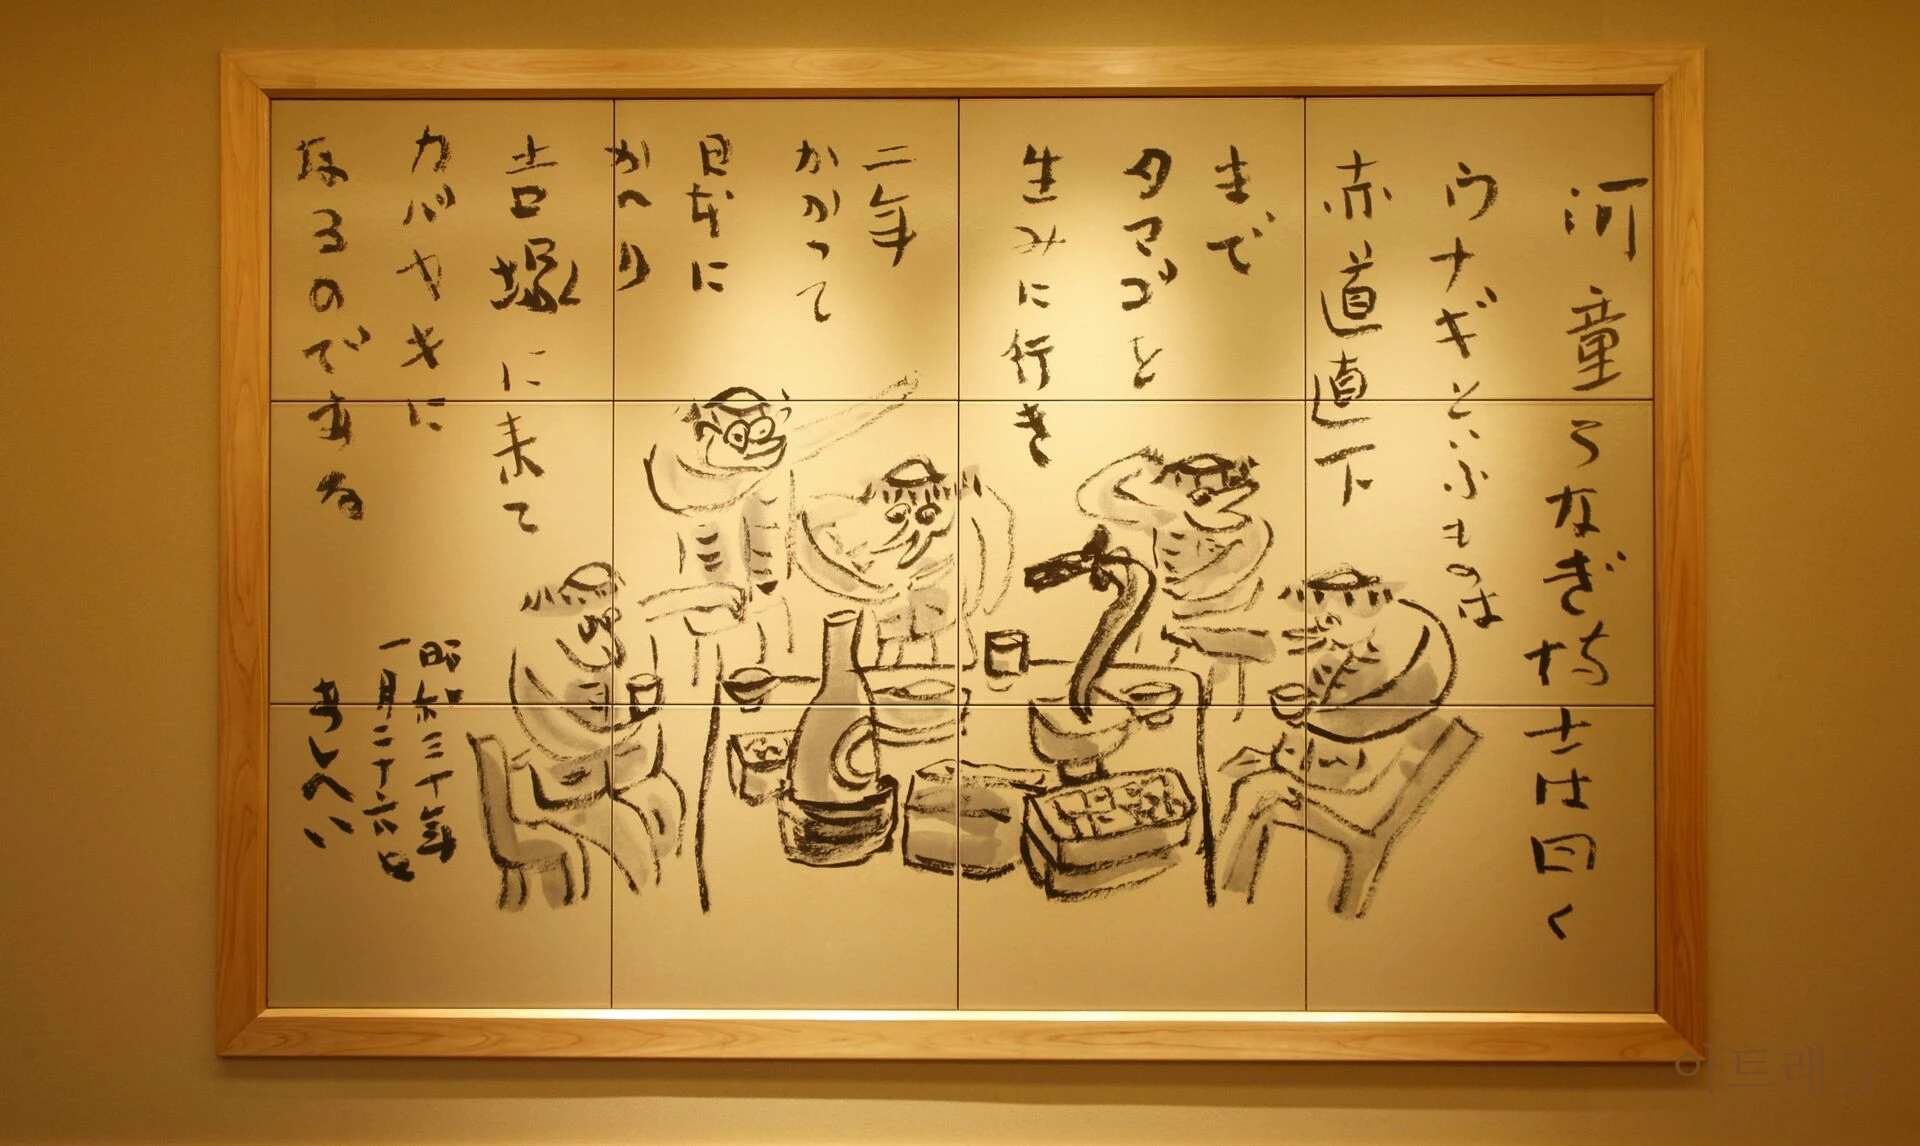 河童うなぎ博士は曰く
ウナギといふものは
赤道直下
まで
タマゴを
生みに行き
二年
かかって
日本に
かへり
吉塚に来て
カバヤキに
なるのである
昭和三十年
一月二十六日
あしへい
아트래블